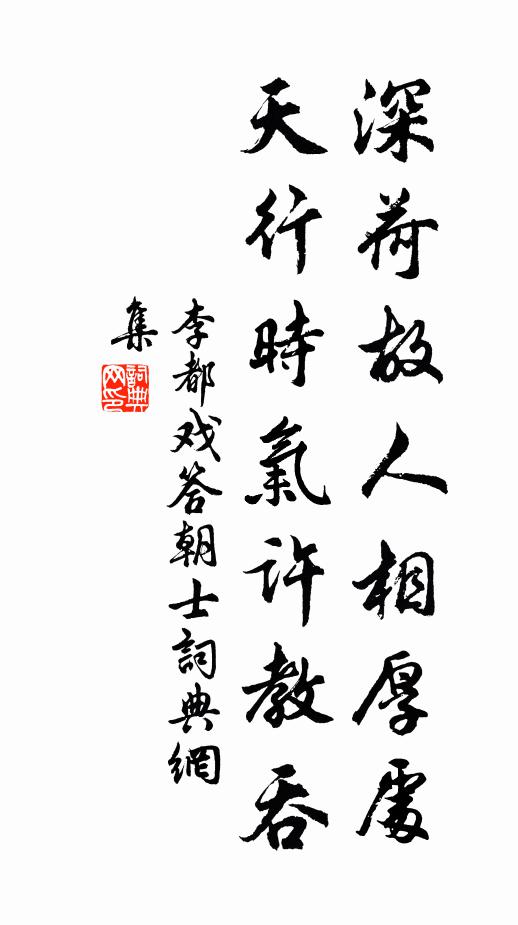 深荷故人相厚處
天行時氣許教吞
李都戏答朝士詞典網
集
詞典
网印